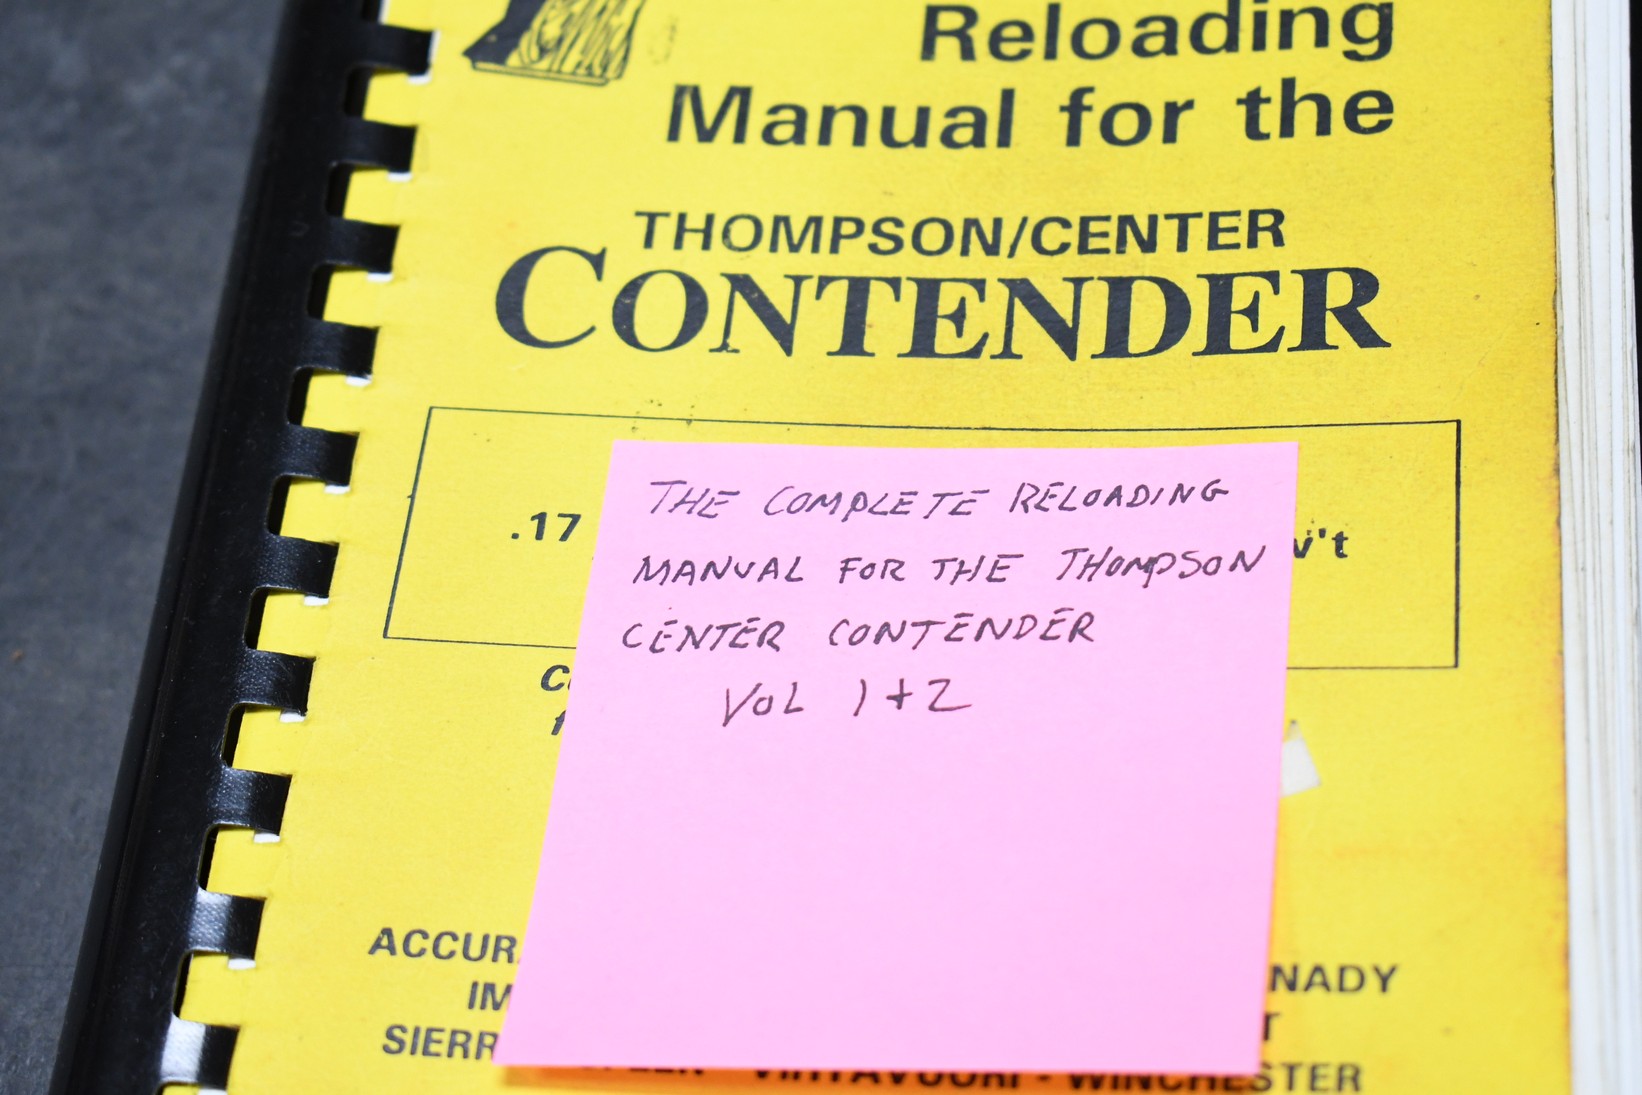 Reloading
Manual for the
THOMPSON/CENTER
CONTENDER
.17
v't
THE COMPLETE RELOADING
MANUAL FOR THE THOMPSON
CENTER CONTENDER
VOL 1+2
ACCUR
NADY
IM
T
SIERR
VIHTAVUORI - WINCHESTER